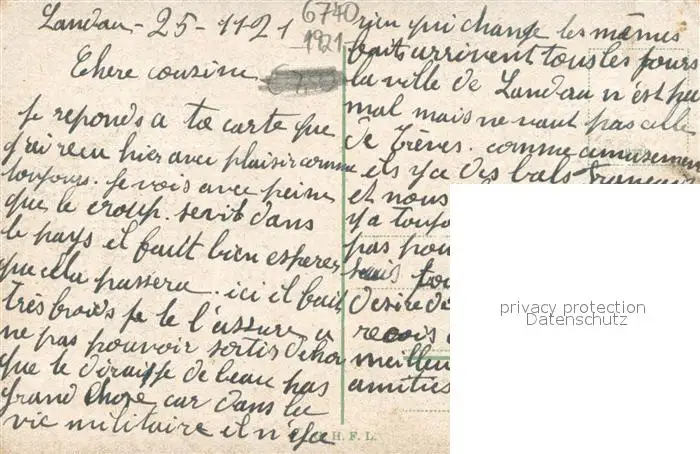 Landau - 25 - 11-21
6740
1921
Chere cousine
Je reponds a ta carte que
j'ai recu hier avec plaisir comme
toujours. Je vois avec peine
que le croup. sevit dans
le pays il fault bien esperer
que cela passera. ici il fait
très froids je te l'assure a
ne pas pouvoir sortir dehor
que te dirais je de beau pas
grand chose car dans la
vie militaire il n'y a
rien qui change les mêmes
faits arrivent tous les jours
la ville de Landau n'est pas
mal mais ne vaut pas celle
de Trèves. comme amusement
ils y a des bals français
et nous
y a toujo
pas pou
suis tou
desire de
recois
meilleu
amitiés
H. F. L.
privacy protection
Datenschutz